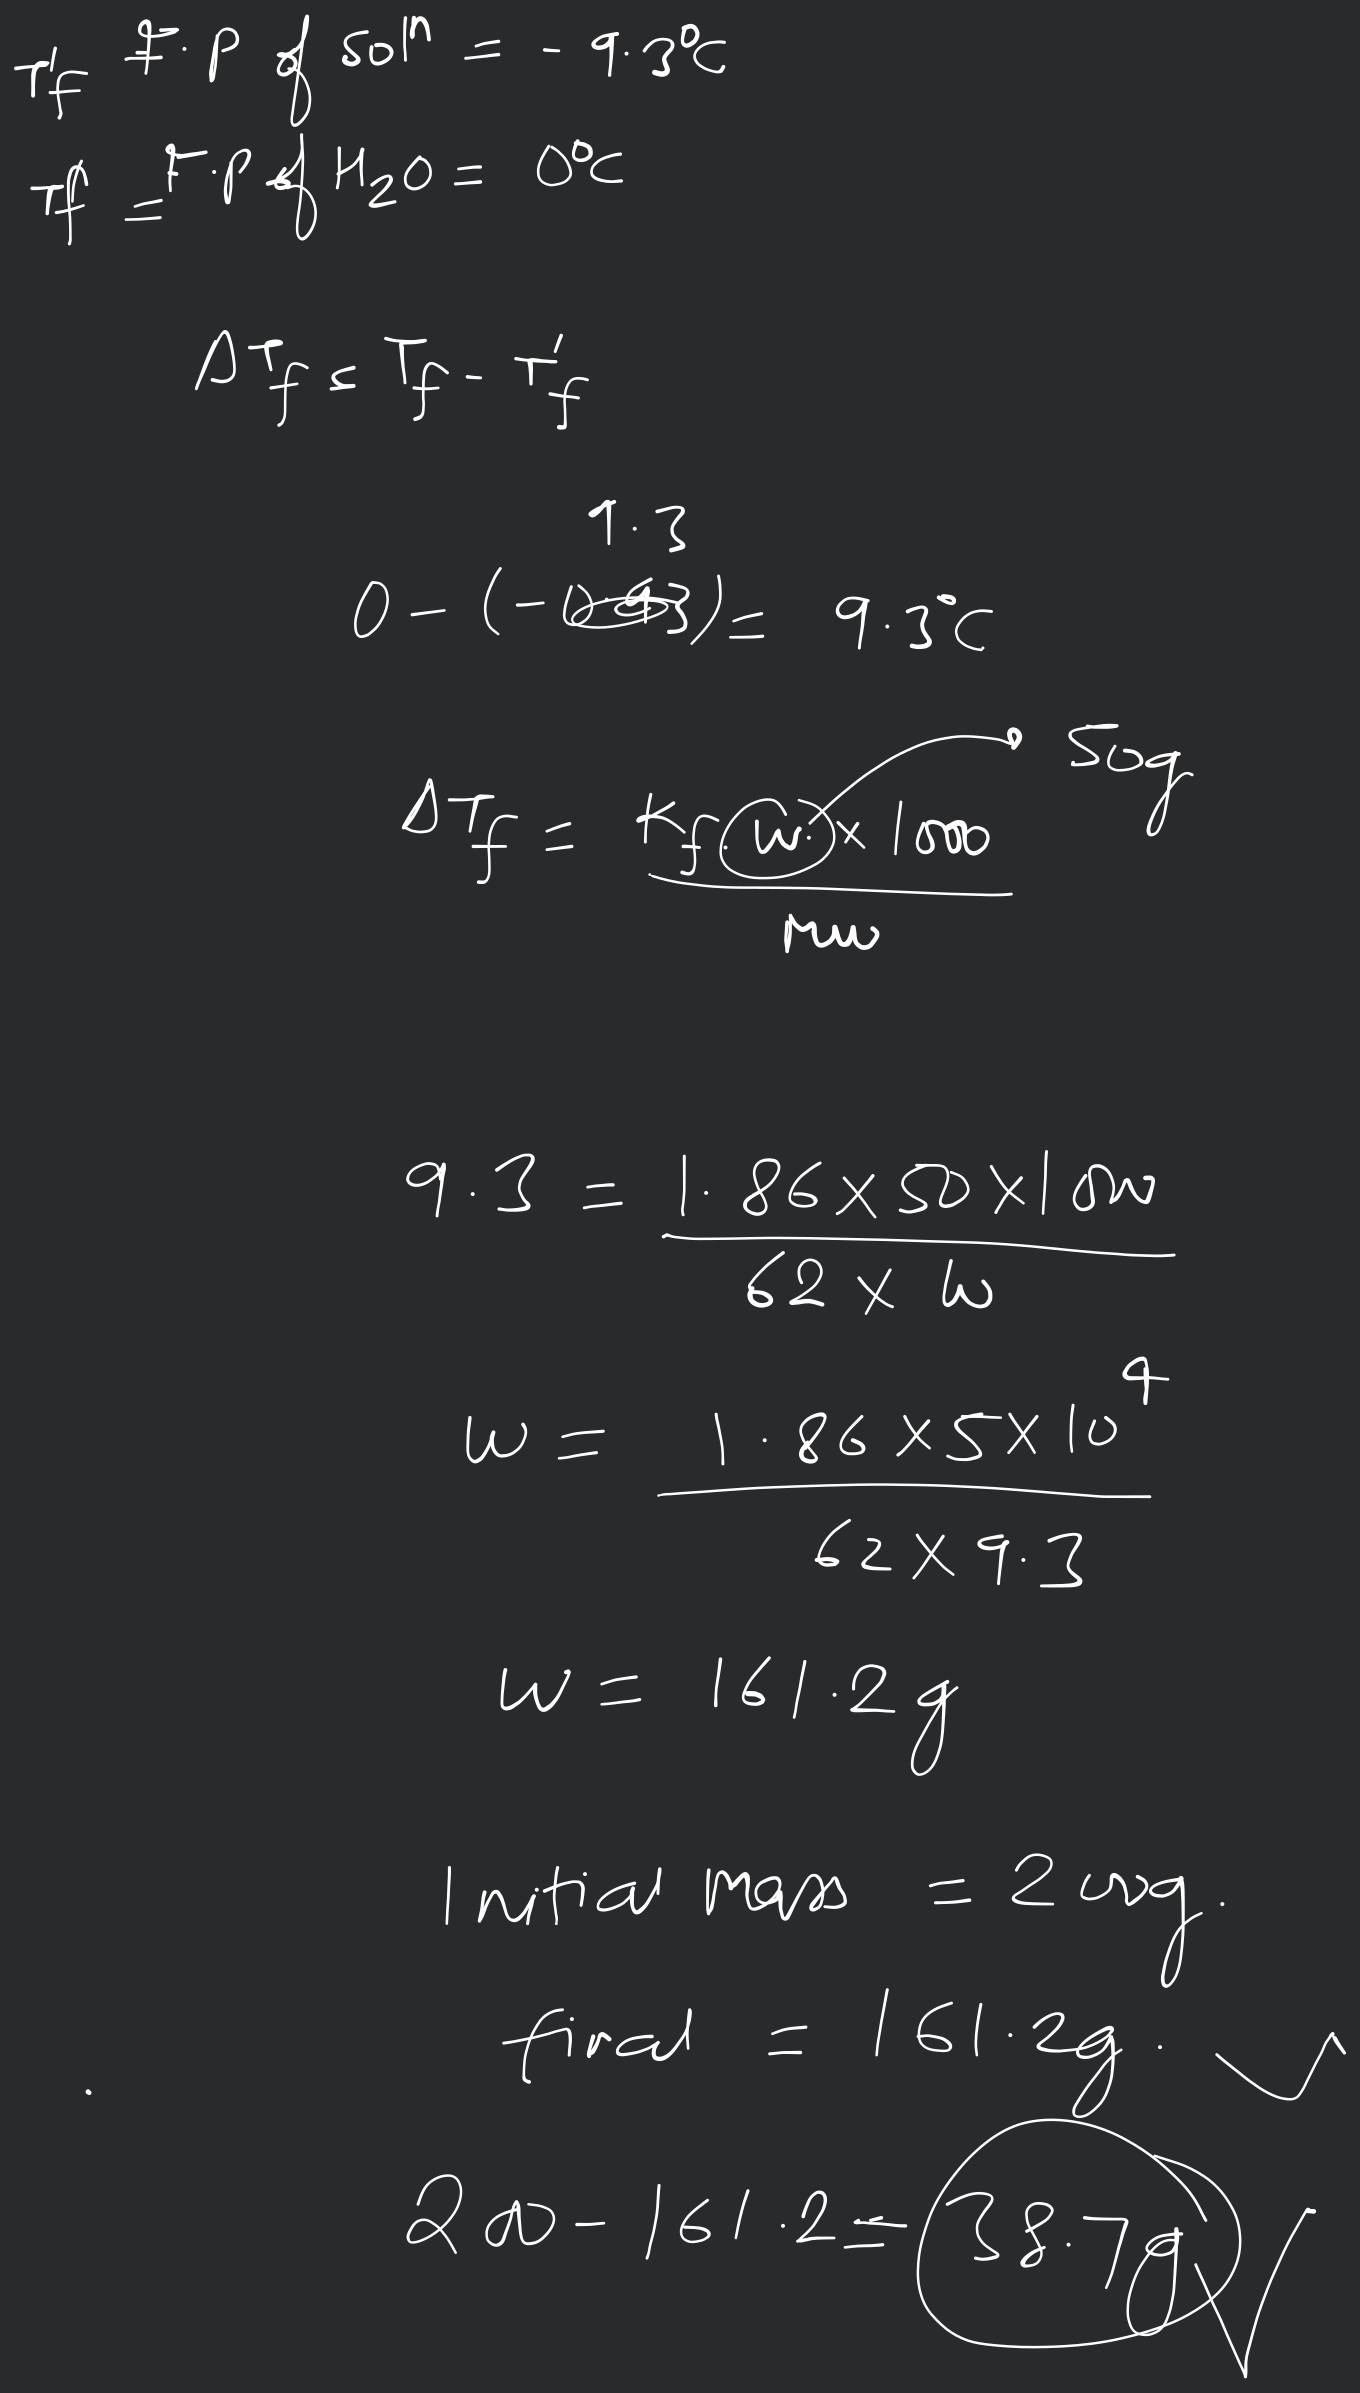 T'f F.P of solⁿ = - 9.3°C
Tf = F.P of H₂O = 0°C
ΔTf = Tf - T'f
9.3
0 - (-    ) = 9.3°C
ΔTf = Kf. w. x 1000 50g
MW
9.3 = 1.86 x 50 x 1000
62 x W
W = 1.86 x 5 x 10⁴
62 x 9.3
W = 161.2g
Initial mass = 200g.
final = 161.2g.
200 - 161.2 = 38.7g